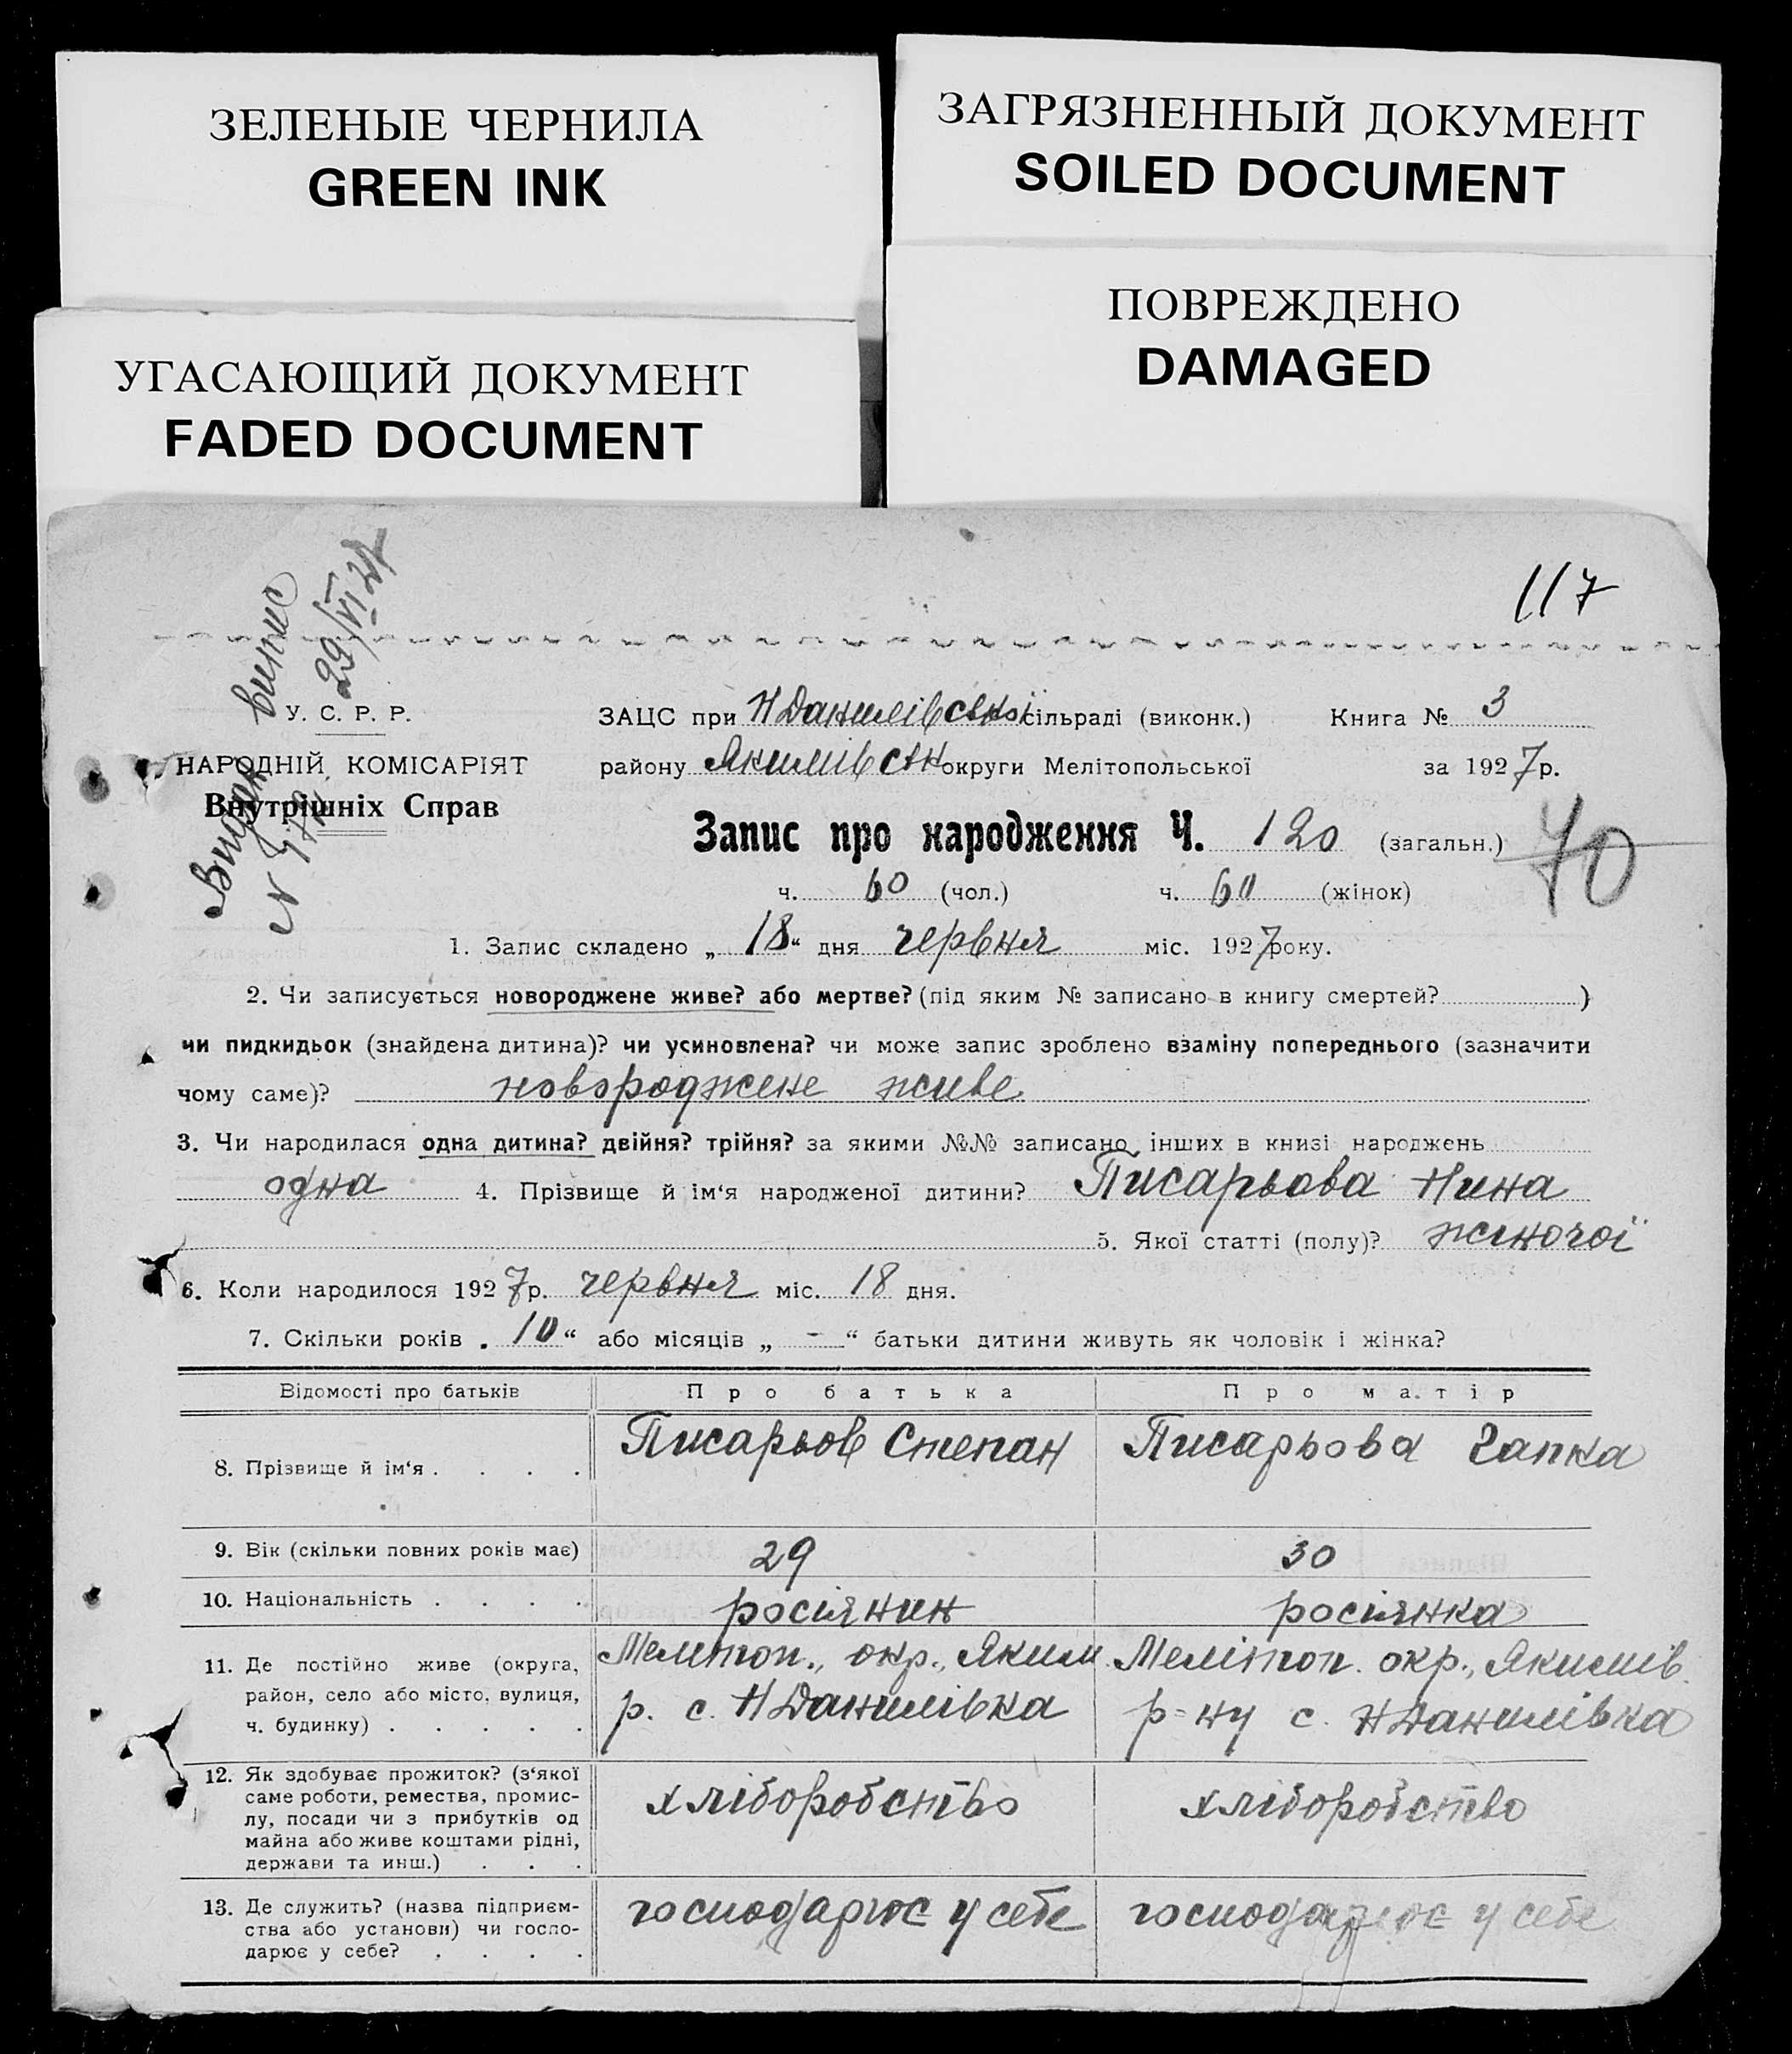 ЗЕЛЕНЫЕ ЧЕРНИЛА
GREEN INK
ЗАГРЯЗНЕННЫЙ ДОКУМЕНТ
SOILED DOCUMENT
УГАСАЮЩИЙ ДОКУМЕНТ
FADED DOCUMENT
ПОВРЕЖДЕНО
DAMAGED
117
Видан випис
29/VI 27
У. С. Р. Р.
НАРОДНІЙ КОМІСАРІЯТ
Внутрішніх Справ
ЗАЦС при Н Данилівській сільраді (виконк.) Книга № 3
району Якимівськ округи Мелітопольської за 1927 р.
Запис про народження Ч. 120 (загальн.) 70
ч. 60 (чол.) ч. 60 (жінок)
1. Запис складено „ 18 “ дня червня міс. 1927 року.
2. Чи записується новороджене живе? або мертве? (під яким № записано в книгу смертей? )
чи пидкидьок (знайдена дитина)? чи усиновлена? чи може запис зроблено взаміну попереднього (зазначити
чому саме)? новороджене живе
3. Чи народилася одна дитина? двійня? трійня? за якими №№ записано інших в книзі народжень
одна 4. Прізвище й ім‘я народженої дитини? Писарьова Нина
5. Якої статті (полу)? жіночої
6. Коли народилося 1927 р. червня міс. 18 дня.
7. Скільки років „ 10 “ або місяців „ - “ батьки дитини живуть як чоловік і жінка?
Відомості про батьків Про батька Про матір
8. Прізвище й ім‘я . . . . Писарьов Степан Писарьова Гапка
9. Вік (скільки повних років має) 29 30
10. Національність . . . . росіянин росіянка
11. Де постійно живе (округа,
район, село або місто, вулиця,
ч. будинку) . . . . .
Мелітоп., окр., Яким.
р. с. Н Данилівка
Мелітоп. окр., Якимів.
р=ну с. Н Данилівка
12. Як здобуває прожиток? (з‘якої
саме роботи, ремества, промис-
лу, посади чи з прибутків од
майна або живе коштами рідні,
держави та инш.) . . .
хліборобство хліборобство
13. Де служить? (назва підприєм-
ства або установи) чи госпо-
дарює у себе? . . . .
господарює у себе господарює у себе